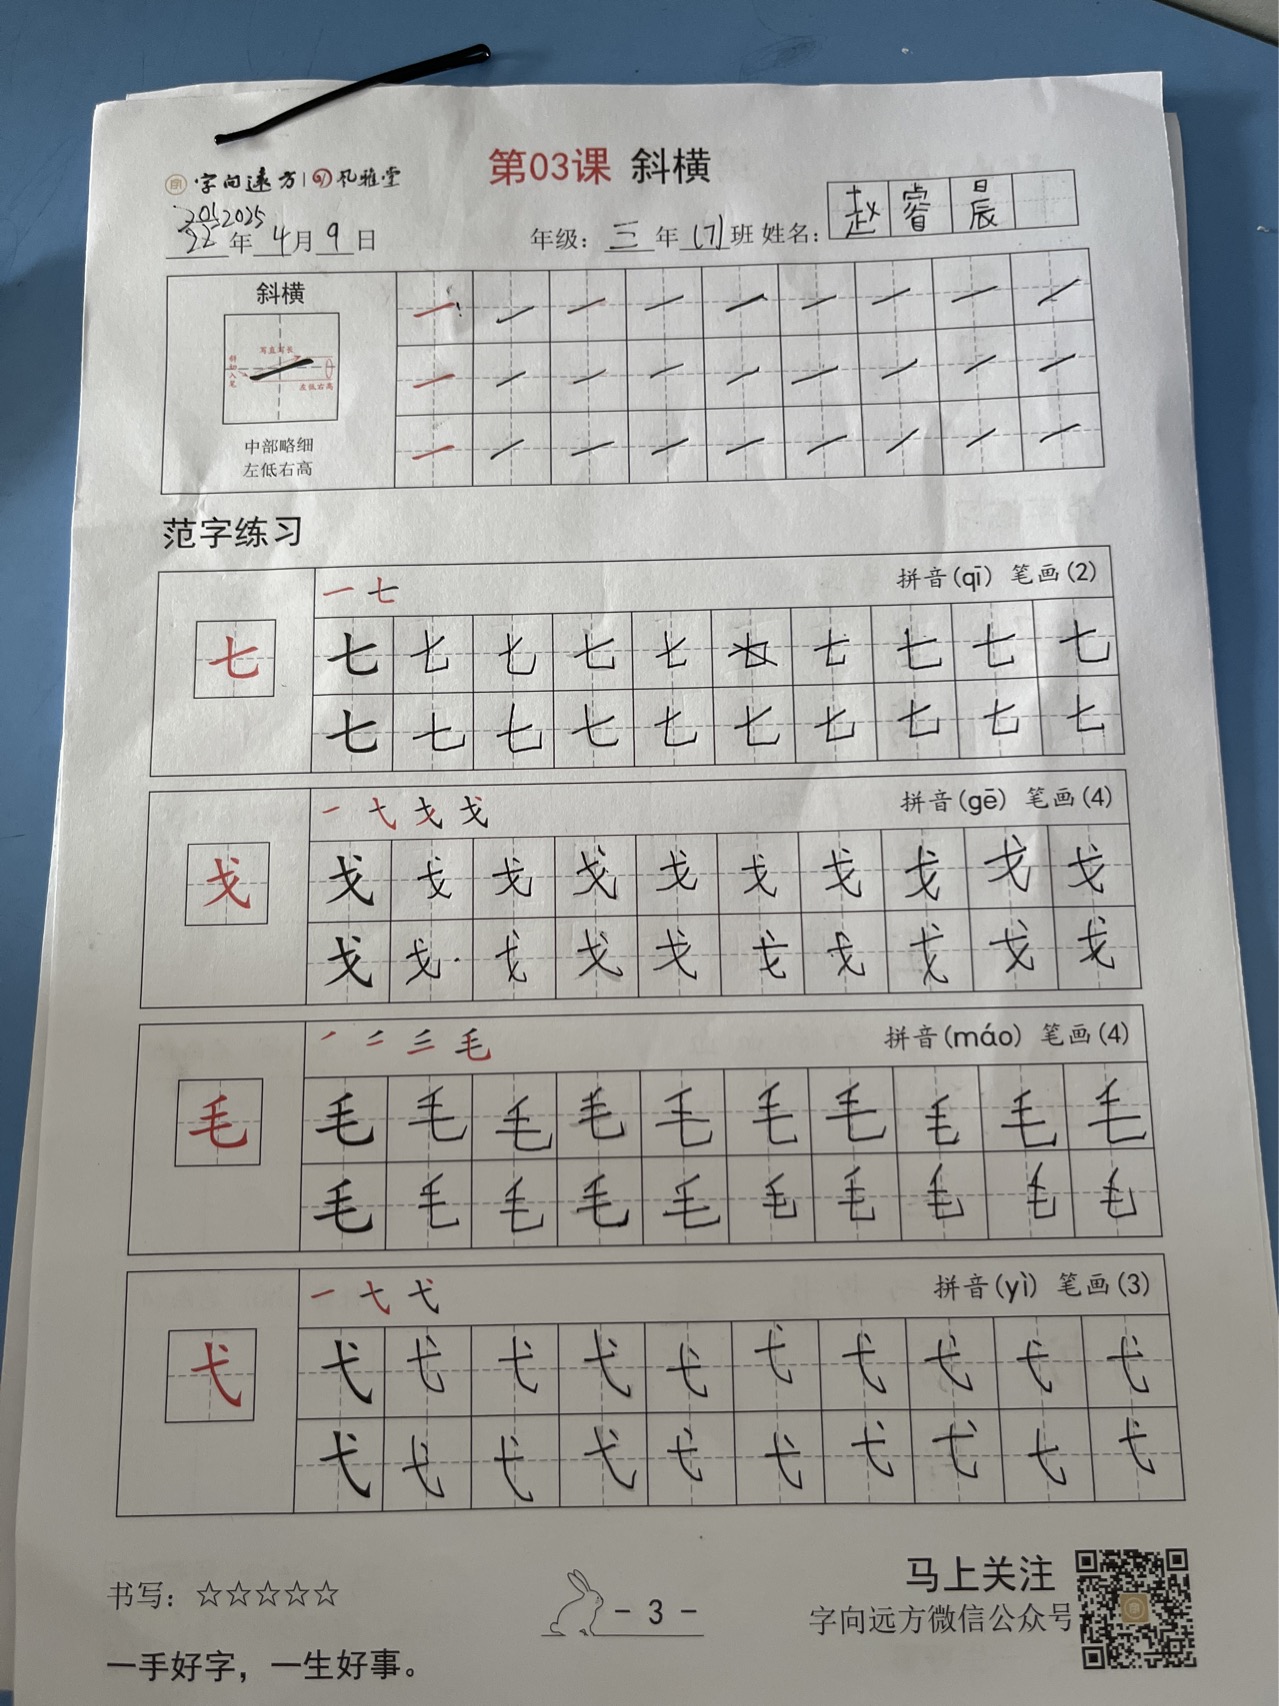 第03课 斜横
字向远方 风雅堂
2025年4月9日 年级：三年(7)班 姓名：赵睿晨
斜横
写直写长
斜切入笔
左低右高
中部略细
左低右高
范字练习
一 七 拼音(qī) 笔画(2)
七 七 七 七 七 七 七 七 七 七
七 七 七 七 七 七 七 七 七 七 七
一 弋 戈 戈 拼音(gē) 笔画(4)
戈 戈 戈 戈 戈 戈 戈 戈 戈 戈 戈
戈 戈 戈 戈 戈 戈 戈 戈 戈 戈
毛 拼音(máo) 笔画(4)
毛 毛 毛 毛 毛 毛 毛 毛 毛 毛 毛
毛 毛 毛 毛 毛 毛 毛 毛 毛 毛
一 弋 弋 拼音(yì) 笔画(3)
弋 弋 弋 弋 弋 弋 弋 弋 弋 弋 弋
弋 弋 弋 弋 弋 弋 弋 弋 弋 弋
书写：☆☆☆☆☆
- 3 -
马上关注
字向远方微信公众号
一手好字，一生好事。